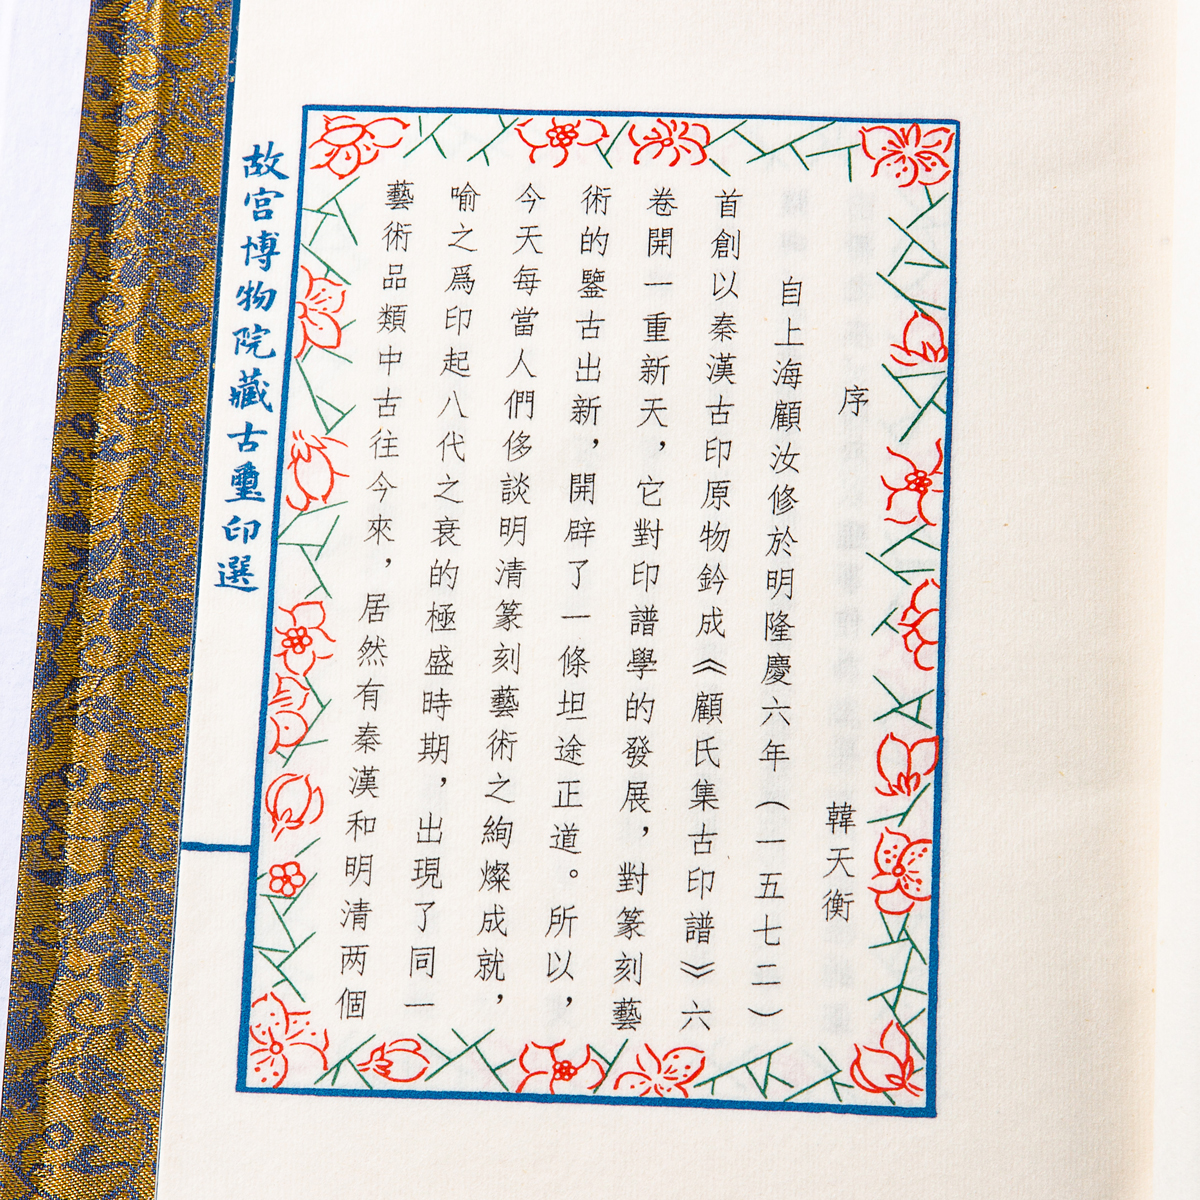 序
韓天衡
自上海顧汝修於明隆慶六年（一五七二）
首創以秦漢古印原物鈐成《顧氏集古印譜》六
卷開一重新天，它對印譜學的發展，對篆刻藝
術的鑒古出新，開辟了一條坦途正道。所以，
今天每當人們侈談明清篆刻藝術之絢燦成就，
喻之爲印起八代之衰的極盛時期，出現了同一
藝術品類中古往今來，居然有秦漢和明清两個
故宮博物院藏古璽印選